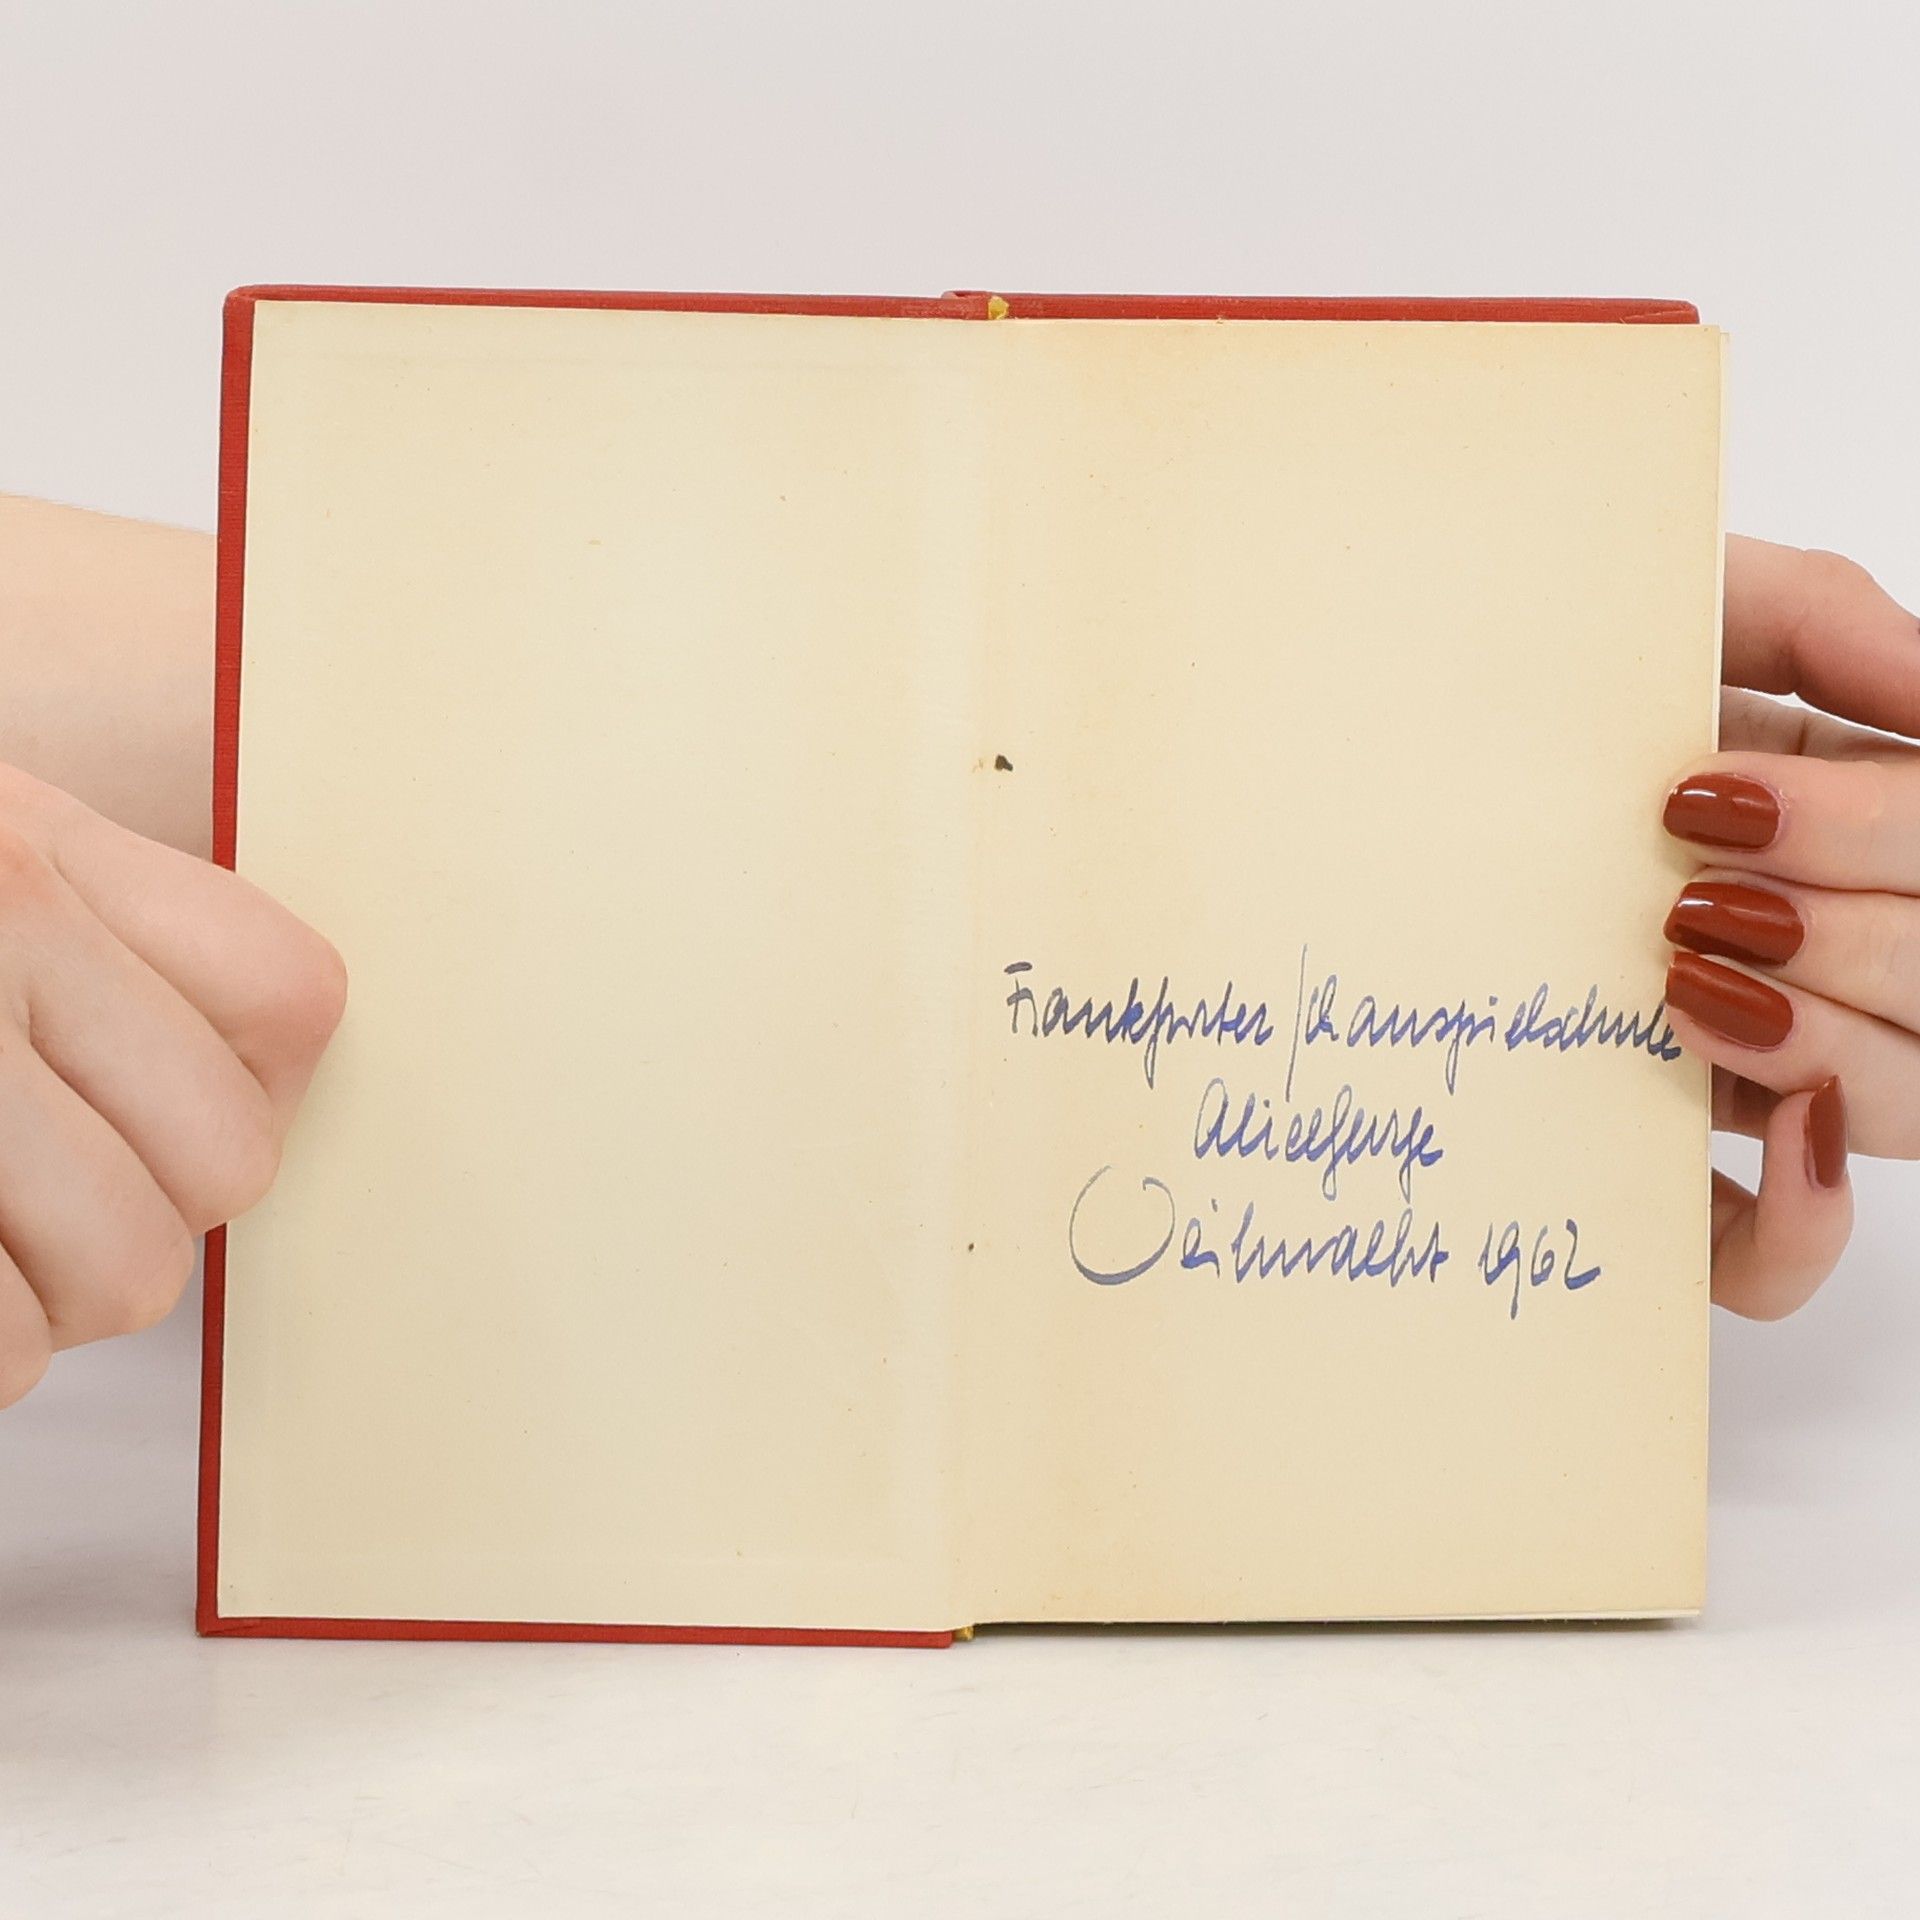 Frankfurter Schauspielschule
Weihnacht 1962